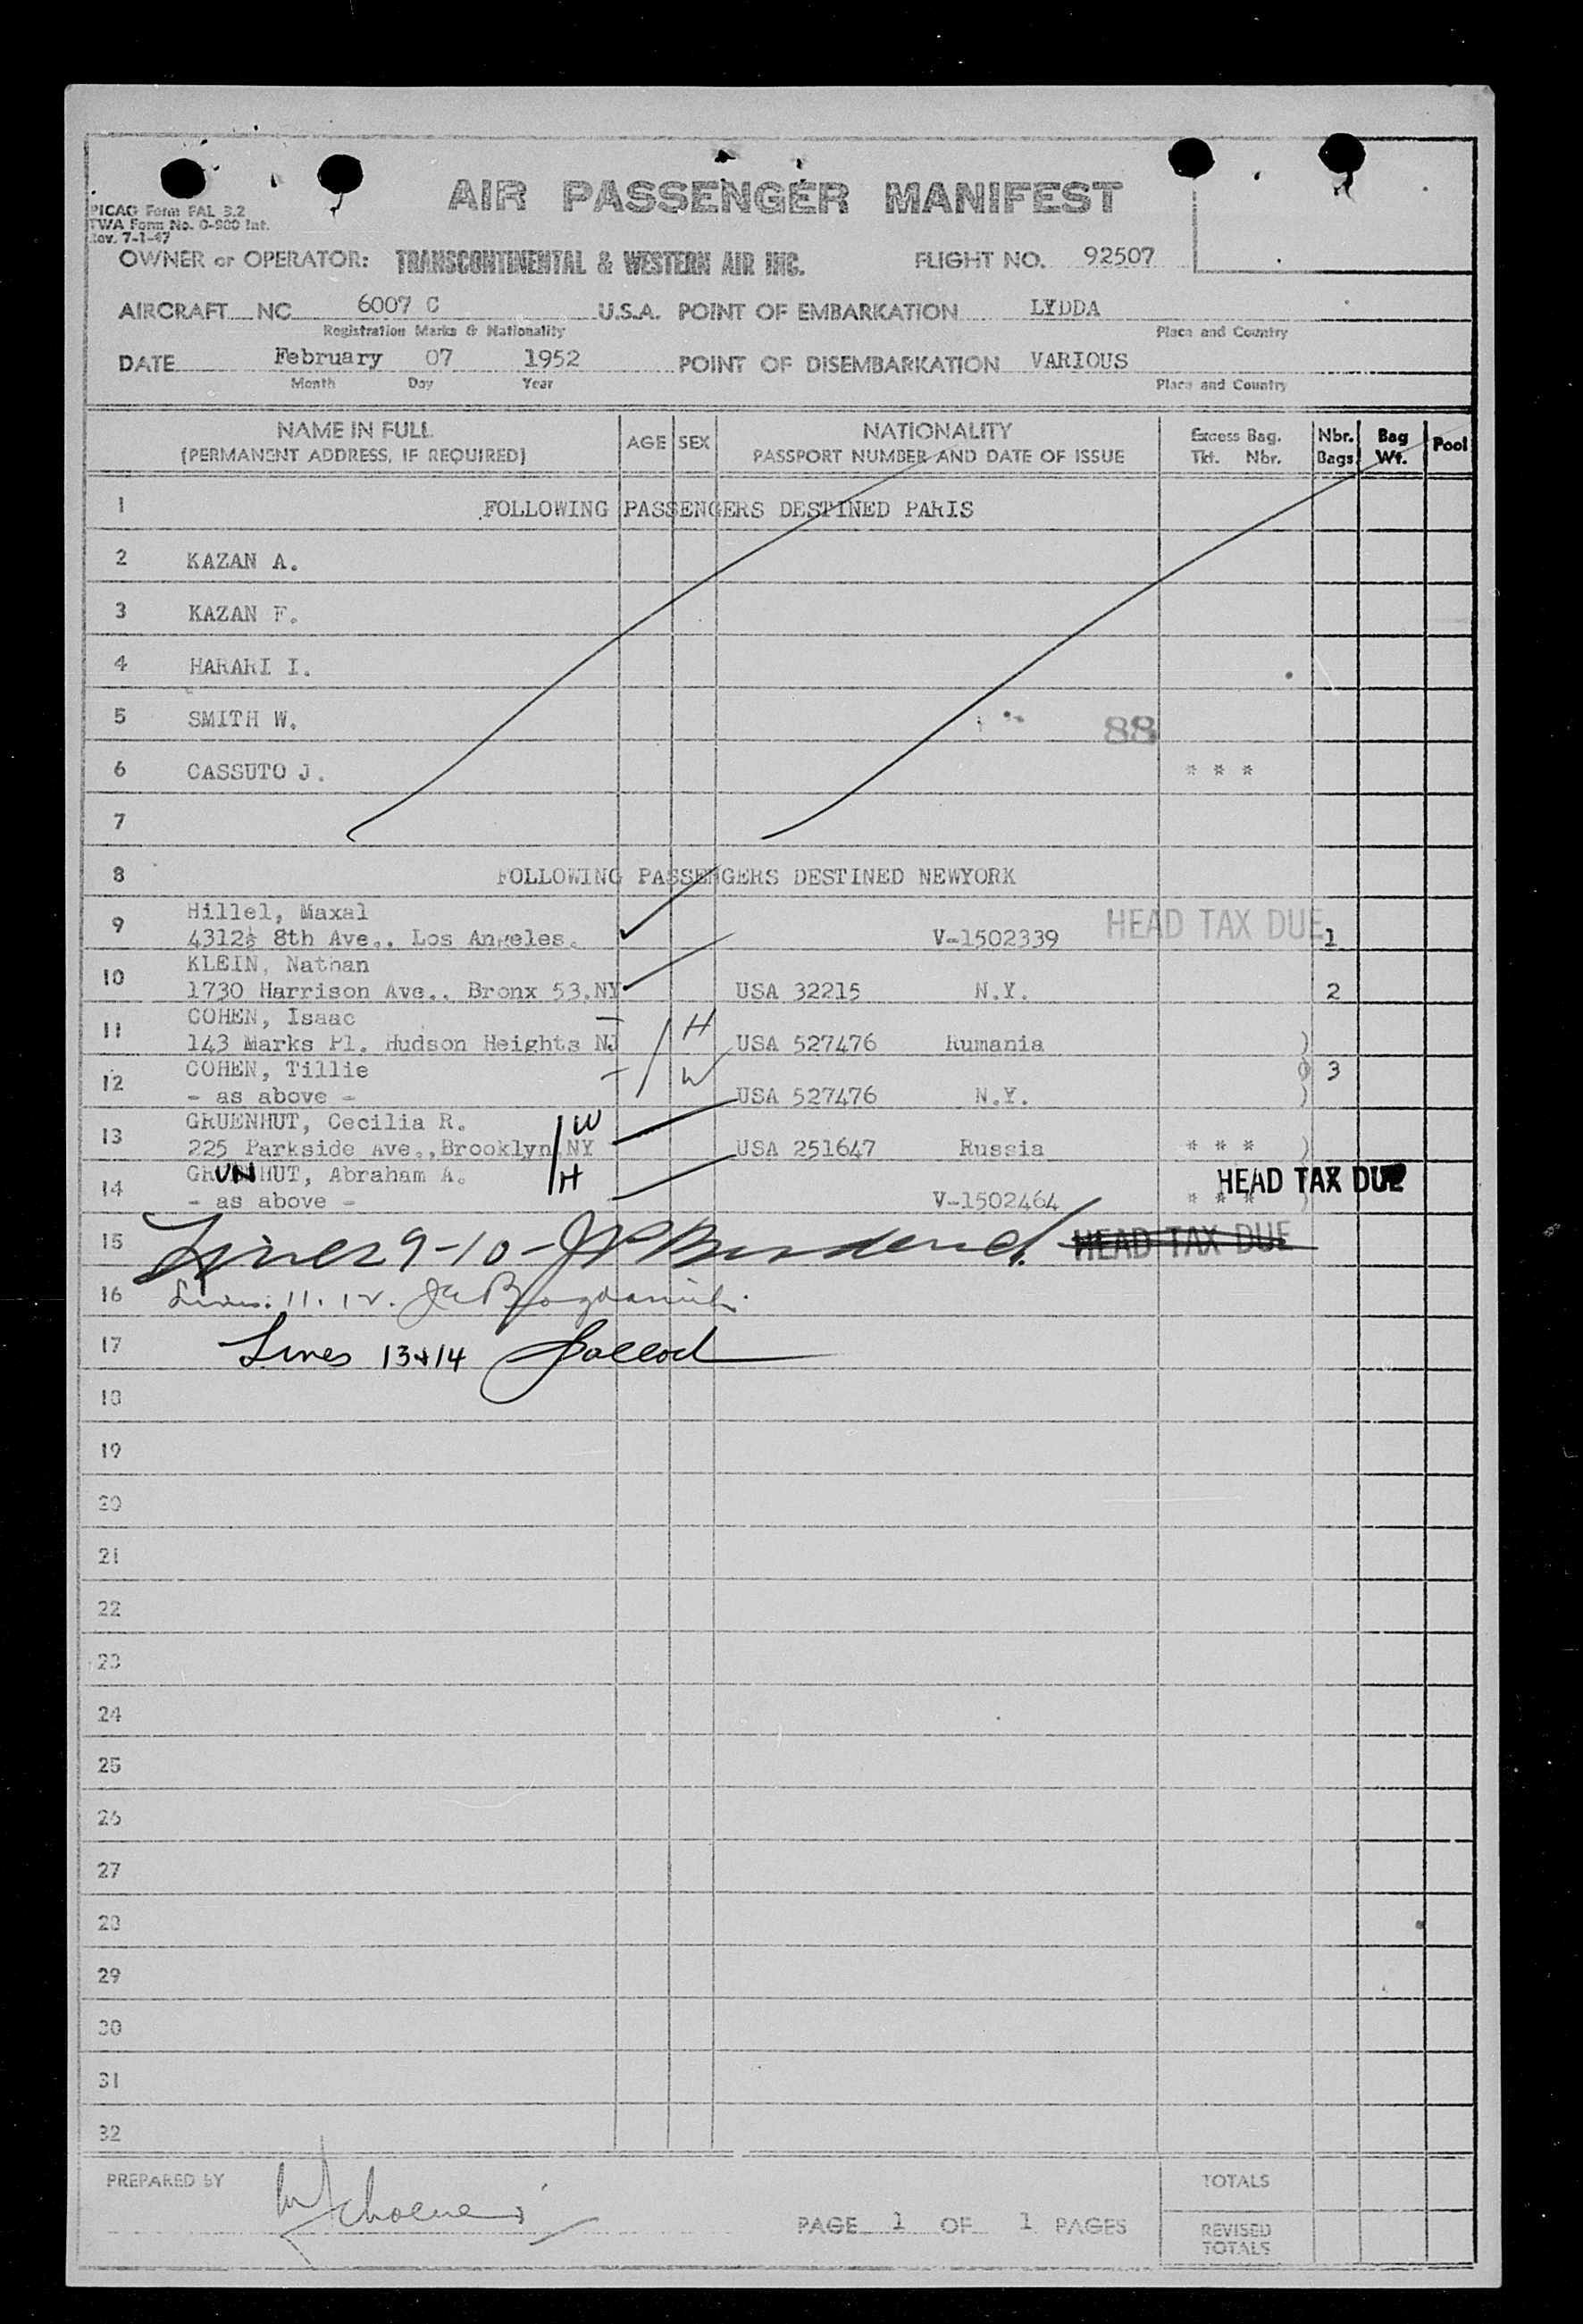 AIR PASSENGER MANIFEST
PICAO Form FAL 3.2
TWA Form No. O-980 Int.
Rev. 7-1-47
OWNER or OPERATOR: TRANSCONTINENTAL & WESTERN AIR INC. FLIGHT NO. 92507
AIRCRAFT NC 6007 C U.S.A. POINT OF EMBARKATION LYDDA
Registration Marks & Nationality Place and Country
DATE February 07 1952 POINT OF DISEMBARKATION VARIOUS
Month Day Year Place and Country
NAME IN FULL AGE SEX NATIONALITY Excess Bag. Nbr. Bag Pool
(PERMANENT ADDRESS, IF REQUIRED) PASSPORT NUMBER AND DATE OF ISSUE Tkt. Nbr. Bags Wt.
1 FOLLOWING PASSENGERS DESTINED PARIS
2 KAZAN A.
3 KAZAN F.
4 HARARI I.
5 SMITH W. 88
6 CASSUTO J. * * *
7
8 FOLLOWING PASSENGERS DESTINED NEWYORK
9 Hillel, Maxal HEAD TAX DUE
4312½ 8th Ave.. Los Angeles. V-1502339 1
10 KLEIN, Nathan
1730 Harrison Ave.. Bronx 53.NY USA 32215 N.Y. 2
11 COHEN, Isaac H
143 Marks Pl. Hudson Heights NJ USA 527476 Rumania )
12 COHEN, Tillie W ) 3
- as above - USA 527476 N.Y. )
13 GRUENHUT, Cecilia R. W
225 Parkside Ave.,Brooklyn,NY USA 251647 Russia * * * )
14 GRUNHUT, Abraham A. H HEAD TAX DUE
- as above - V-1502464 * * * )
15 Lines 9-10- HEAD TAX DUE
16 Lines: 11. 12.
17 Lines 13+14
18
19
20
21
22
23
24
25
26
27
28
29
30
31
32
PREPARED BY TOTALS
PAGE 1 OF 1 PAGES REVISED
TOTALS